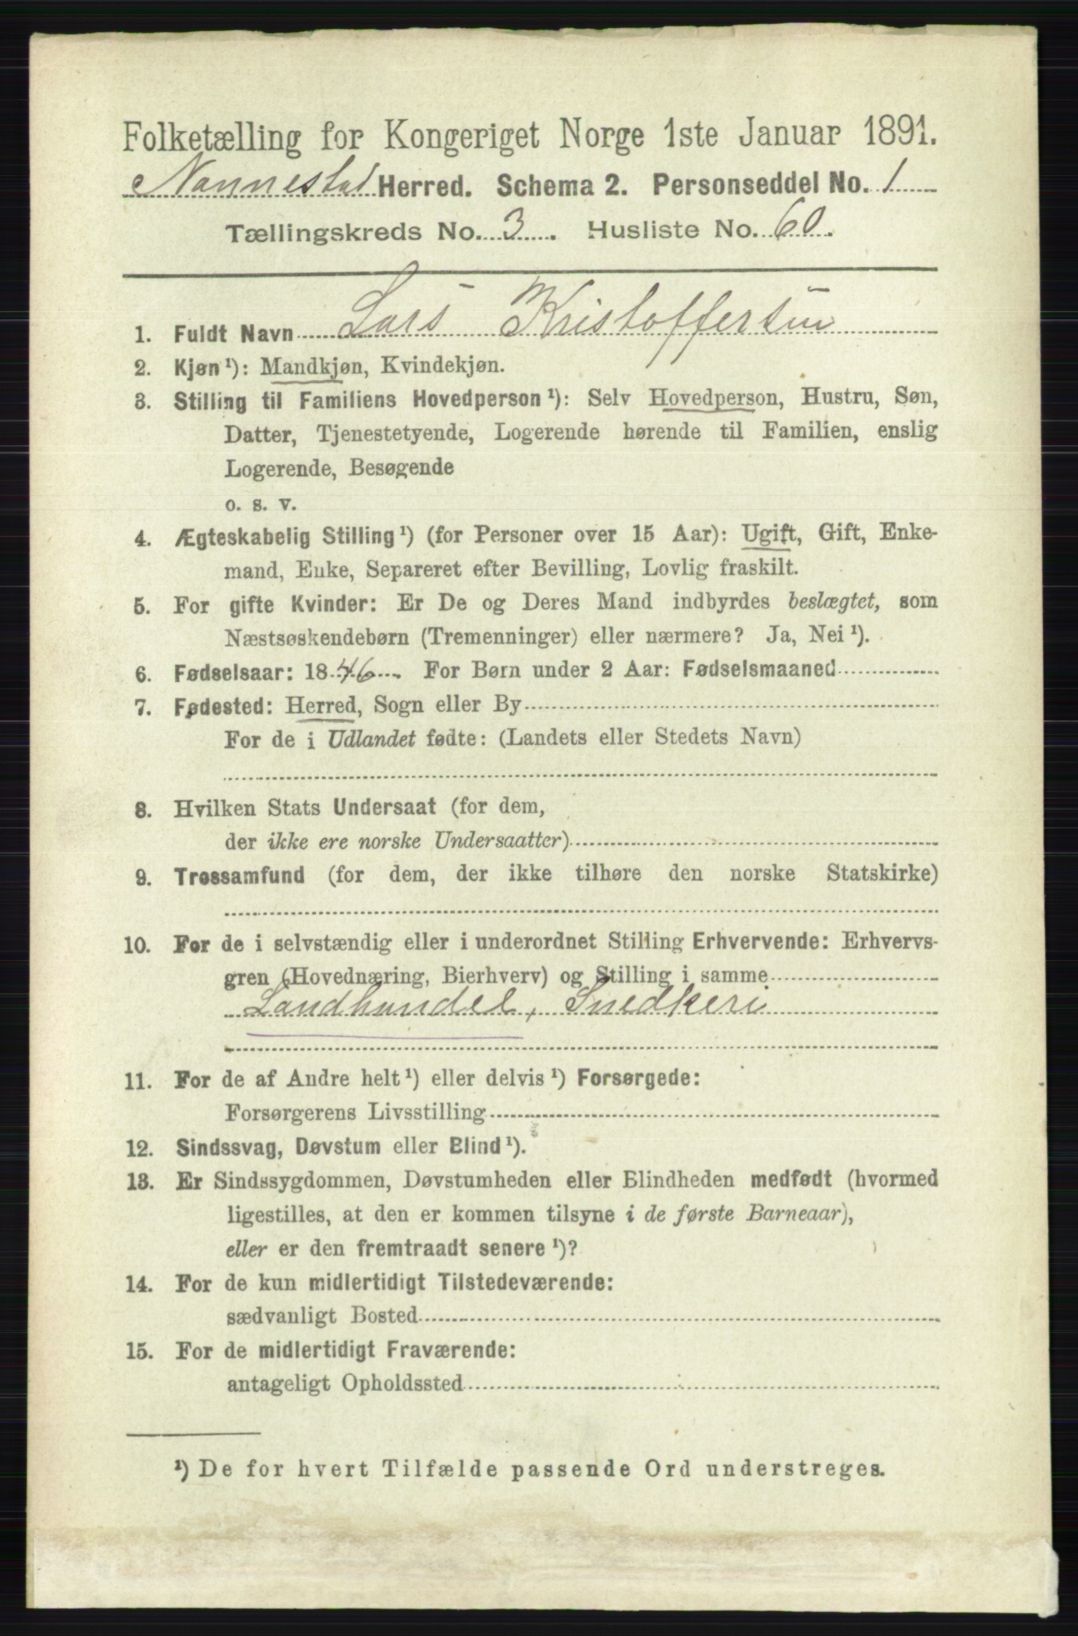 Folketælling for Kongeriget Norge 1ste Januar 1891.
Nannestad Herred. Schema 2. Personseddel No. 1
Tællingskreds No. 3. Husliste No. 60.
1. Fuldt Navn Lars Kristoffersen
2. Kjøn ¹): Mandkjøn, Kvindekjøn.
3. Stilling til Familiens Hovedperson ¹): Selv Hovedperson, Hustru, Søn,
Datter, Tjenestetyende, Logerende hørende til Familien, enslig
Logerende, Besøgende
o. s. v.
4. Ægteskabelig Stilling ¹) (for Personer over 15 Aar): Ugift, Gift, Enke-
mand, Enke, Separeret efter Bevilling, Lovlig fraskilt.
5. For gifte Kvinder: Er De og Deres Mand indbyrdes beslægtet, som
Næstsøskendebørn (Tremenninger) eller nærmere? Ja, Nei ¹).
6. Fødselsaar: 1846. For Børn under 2 Aar: Fødselsmaaned
7. Fødested: Herred, Sogn eller By
For de i Udlandet fødte: (Landets eller Stedets Navn)
8. Hvilken Stats Undersaat (for dem,
der ikke ere norske Undersaatter)
9. Trossamfund (for dem, der ikke tilhøre den norske Statskirke)
10. For de i selvstændig eller i underordnet Stilling Erhvervende: Erhvervs-
gren (Hovednæring, Bierhverv) og Stilling i samme
Landhandel, Snedkeri
11. For de af Andre helt ¹) eller delvis ¹) Forsørgede:
Forsørgerens Livsstilling
12. Sindssvag, Døvstum eller Blind ¹).
13. Er Sindssygdommen, Døvstumheden eller Blindheden medfødt (hvormed
ligestilles, at den er kommen tilsyne i de første Barneaar),
eller er den fremtraadt senere ¹)?
14. For de kun midlertidigt Tilstedeværende:
sædvanligt Bosted
15. For de midlertidigt Fraværende:
antageligt Opholdssted
¹) De for hvert Tilfælde passende Ord understreges.